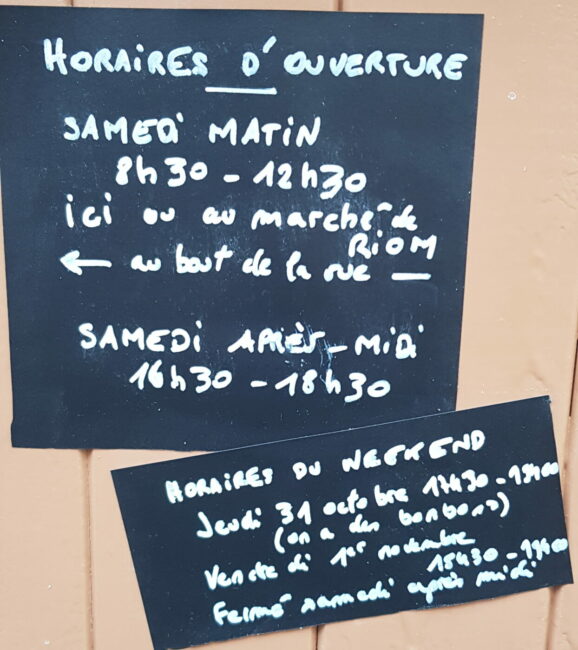 HORAIRES D'OUVERTURE
SAMEDI MATIN
8h30 - 12h30
ici ou au marché de
RIOM
← au bout de la rue —
SAMEDI APRÈS-MIDI
16h30 - 18h30
HORAIRES DU WEEKEND
Jeudi 31 octobre 17h30 - 19h00
(on a des bonbons)
Vendredi 1er novembre
15h30 - 19h00
Fermé samedi après midi